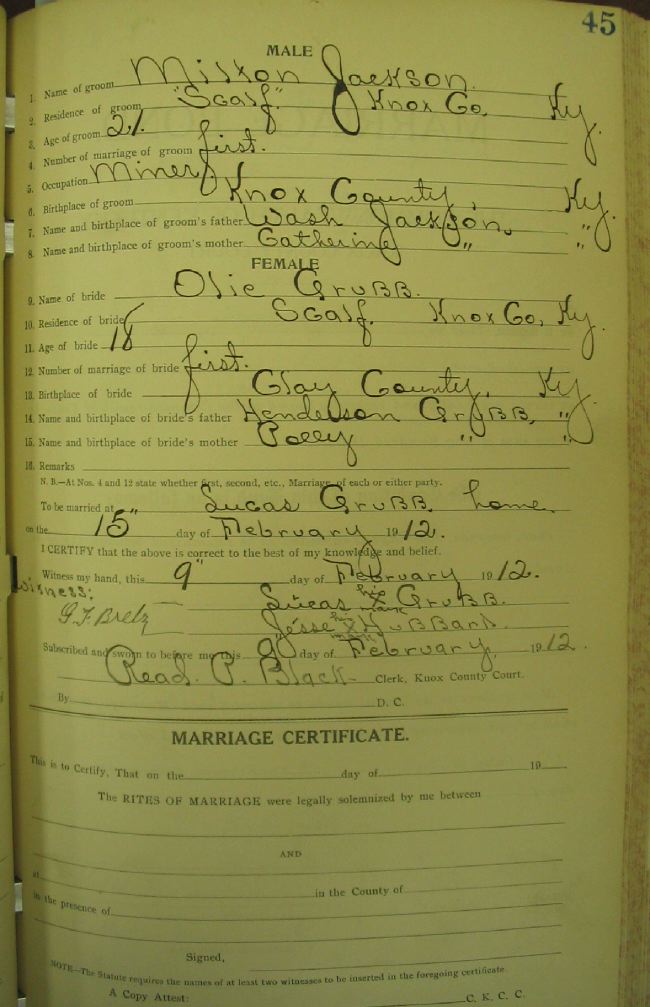 45
MALE
1. Name of groom Milton Jackson.
2. Residence of groom "Scalf." Knox Co, Ky.
3. Age of groom 21.
4. Number of marriage of groom first.
5. Occupation Miner
6. Birthplace of groom Knox County, Ky.
7. Name and birthplace of groom's father Wash Jackson, "
8. Name and birthplace of groom's mother Catherine " "
FEMALE
9. Name of bride Olie Grubb.
10. Residence of bride Scalf. Knox Co, Ky.
11. Age of bride 18
12. Number of marriage of bride first.
13. Birthplace of bride Clay County, Ky.
14. Name and birthplace of bride's father Henderson Grubb, "
15. Name and birthplace of bride's mother Polly " "
16. Remarks
N. B.—At Nos. 4 and 12 state whether first, second, etc., Marriage of each or either party.
To be married at Lucas Grubb home.
on the 15" day of February 1912.
I CERTIFY that the above is correct to the best of my knowledge and belief.
Witness my hand, this 9" day of February 1912.
Witness: Lucas his x mark Grubb.
G.F. Bretz Jesse his x mark Hubbard.
Subscribed and sworn to before me this 9 day of February, 1912.
Read. P. Black Clerk, Knox County Court.
By D. C.
MARRIAGE CERTIFICATE.
This is to Certify, That on the day of 19
The RITES OF MARRIAGE were legally solemnized by me between
AND
at in the County of
in the presence of
Signed,
NOTE—The Statute requires the names of at least two witnesses to be inserted in the foregoing certificate
A Copy Attest: C. K. C. C.